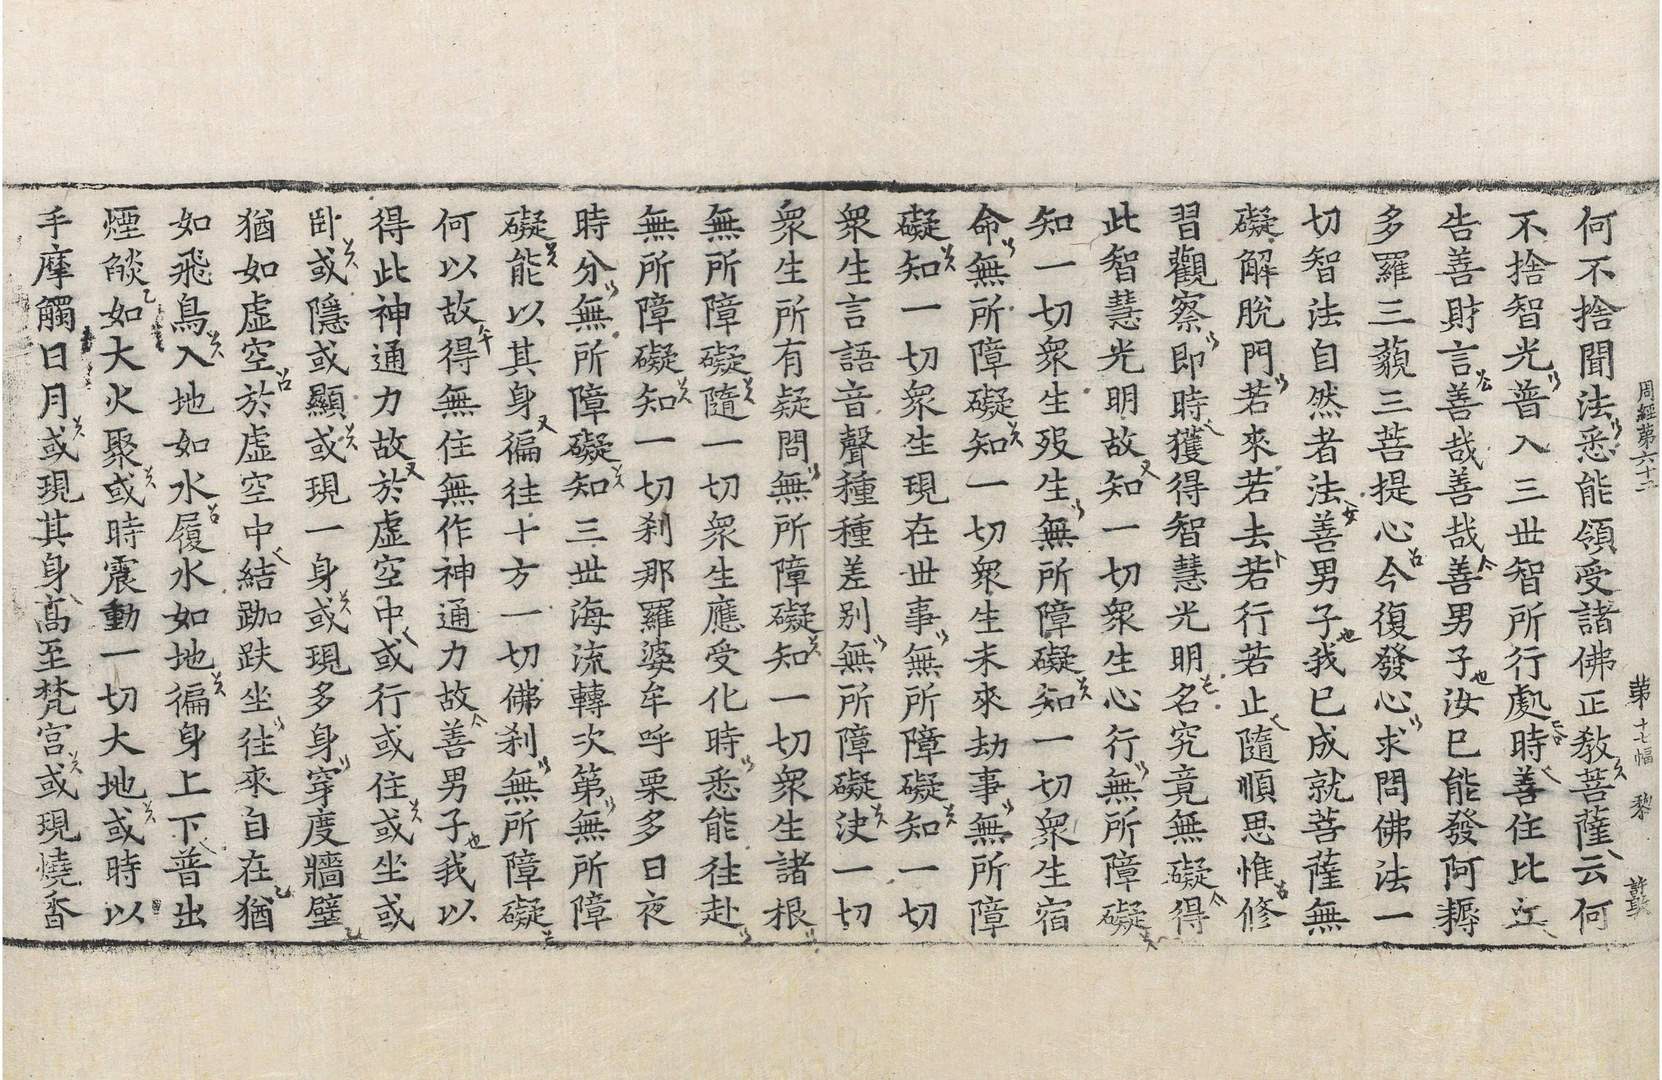 周經第六十二 第十七幅 黎
何不捨聞法悉能領受諸佛正教菩薩云何
不捨智光普入三世智所行處時善住比丘
告善財言善哉善哉善男子汝已能發阿耨
多羅三藐三菩提心今復發心求問佛法一
切智法自然者法善男子我已成就菩薩無
礙解脫門若來若去若行若止隨順思惟修
習觀察即時獲得智慧光明名究竟無礙得
此智慧光明故知一切衆生心行無所障礙
知一切衆生歿生無所障礙知一切衆生宿
命無所障礙知一切衆生未來劫事無所障
礙知一切衆生現在世事無所障礙知一切
衆生言語音聲種種差別無所障礙決一切
衆生所有疑問無所障礙知一切衆生諸根
無所障礙隨一切衆生應受化時悉能往赴
無所障礙知一切刹那羅婆牟呼栗多日夜
時分無所障礙知三世海流轉次第無所障
礙能以其身徧往十方一切佛刹無所障礙
何以故得無住無作神通力故善男子我以
得此神通力故於虛空中或行或住或坐或
卧或隱或顯或現一身或現多身穿度牆壁
猶如虛空於虛空中結跏趺坐往來自在猶
如飛鳥入地如水履水如地徧身上下普出
煙焰如大火聚或時震動一切大地或時以
手摩觸日月或現其身髙至梵宫或現燒香